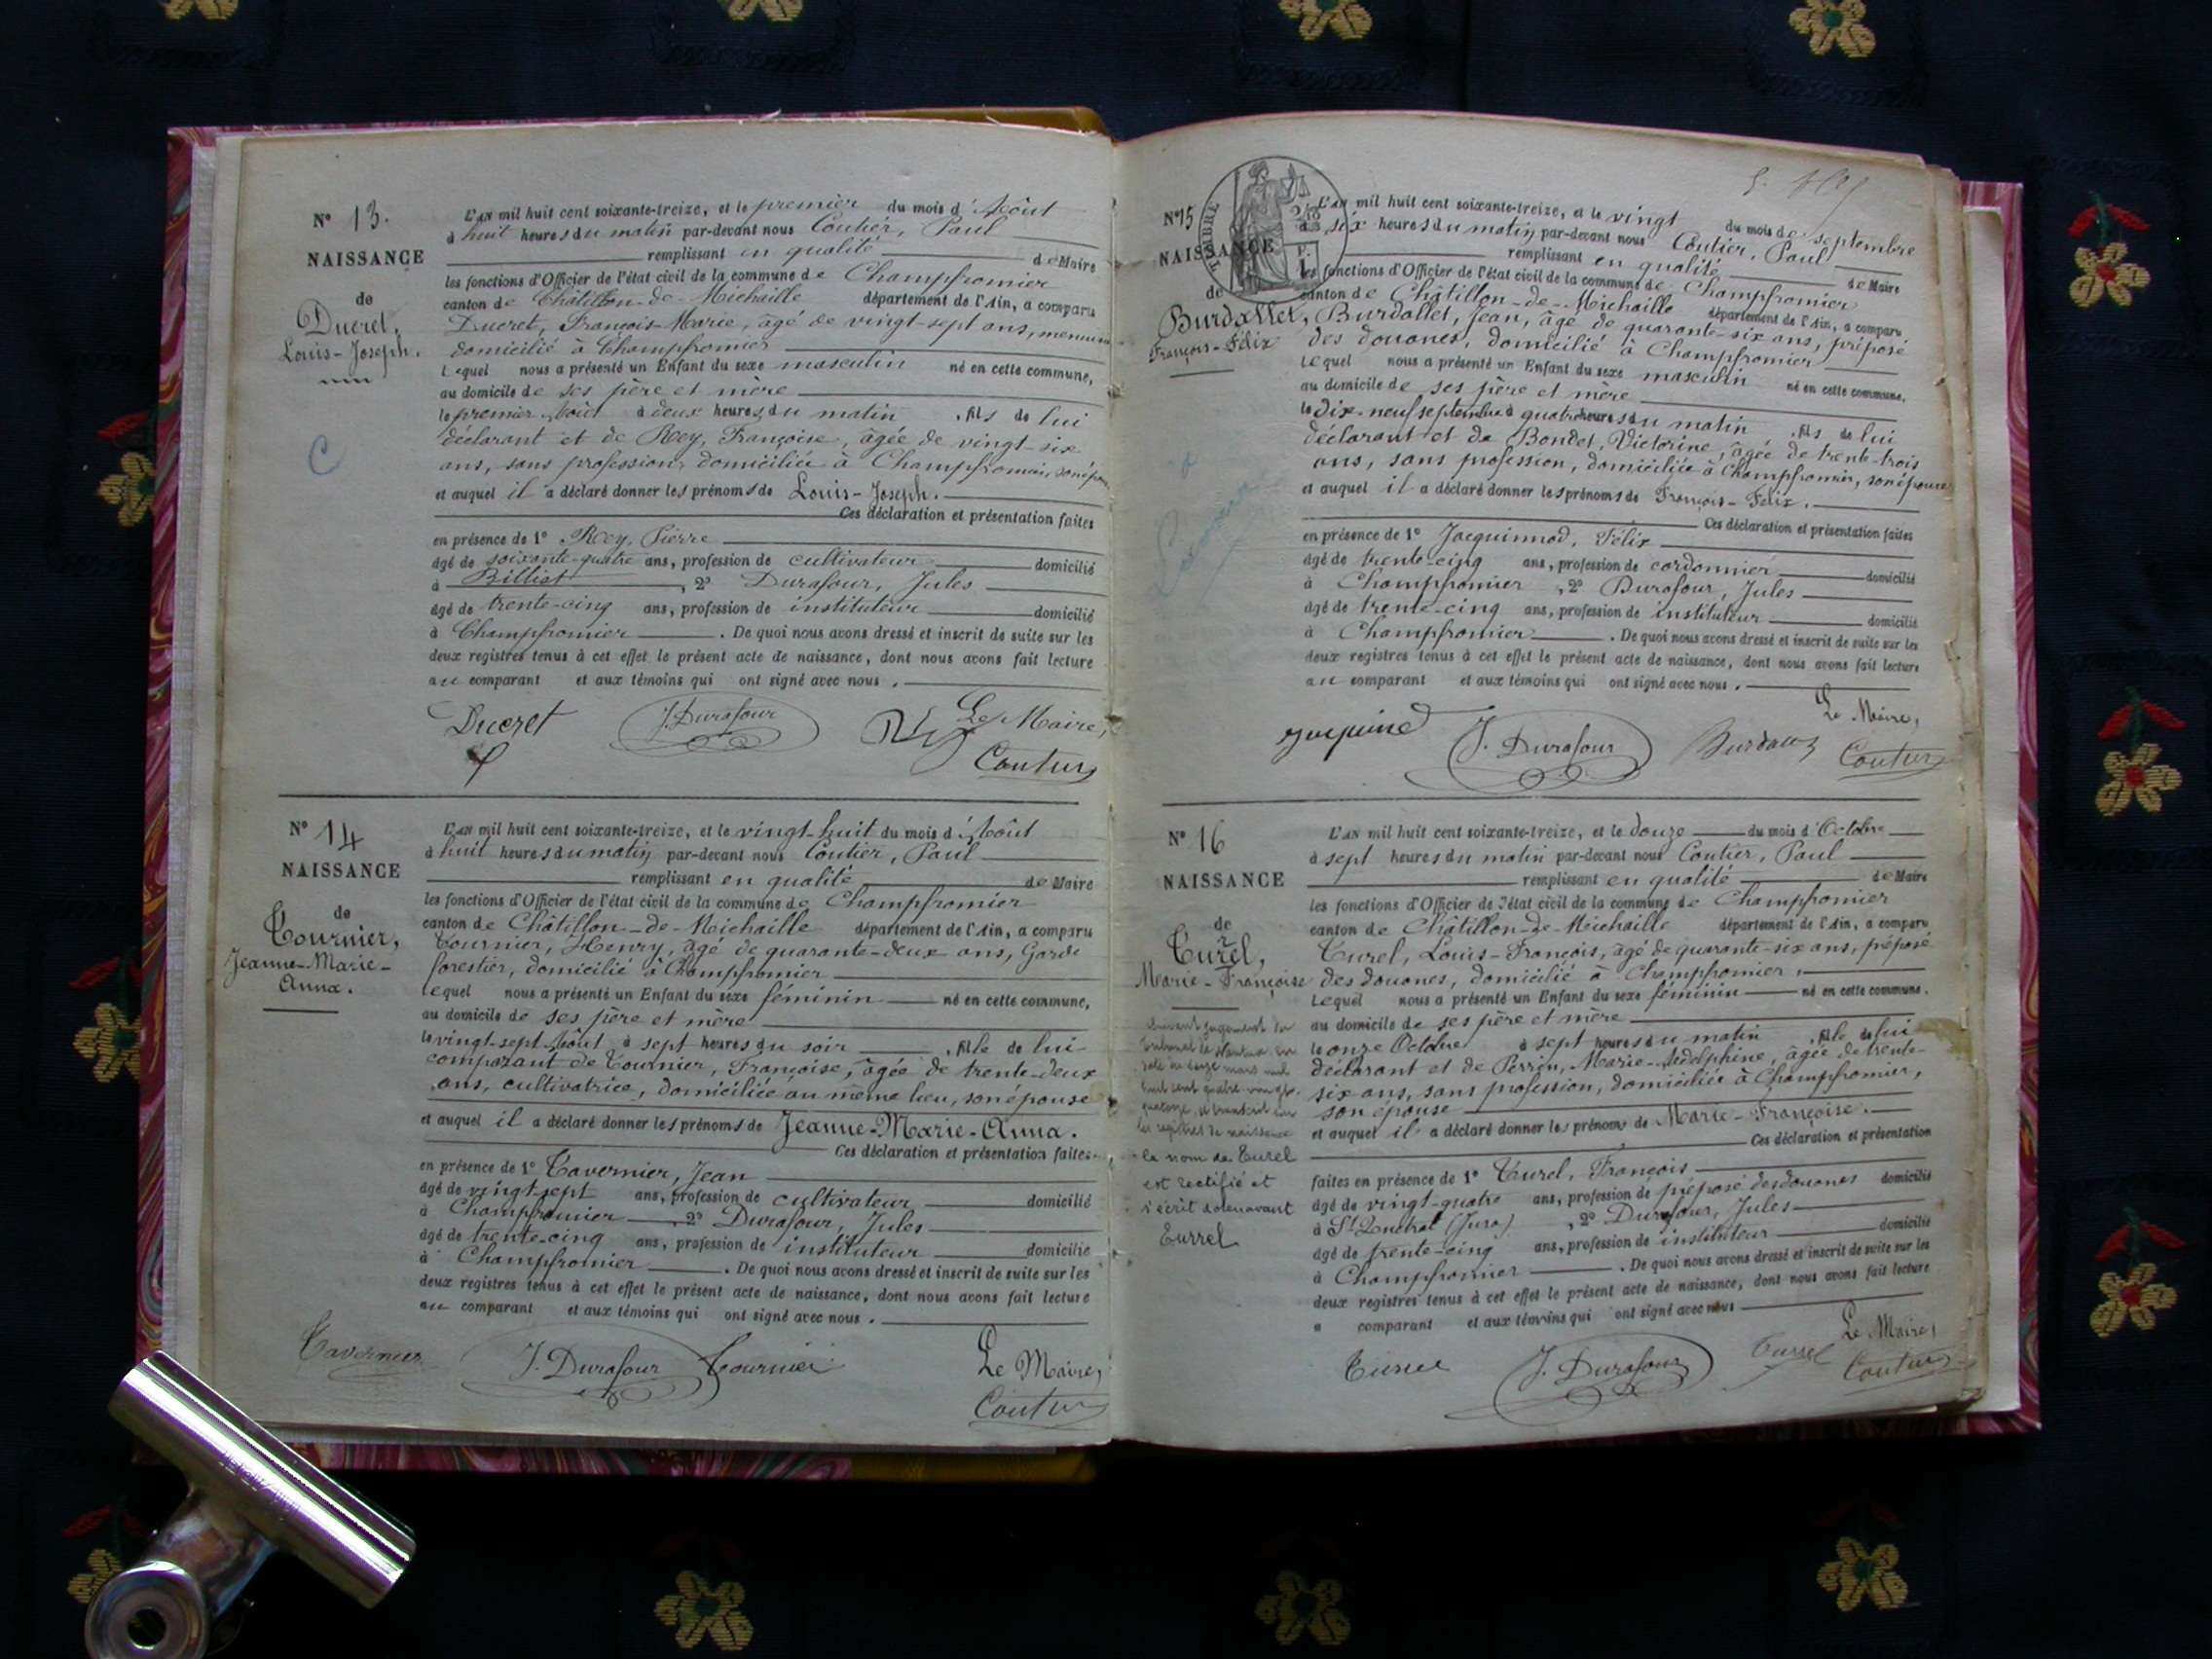 N° 13.
NAISSANCE
de
Ducret,
Louis-Joseph.
C
L'AN mil huit cent soixante-treize, et le premier du mois d'Août
à huit heures du matin par-devant nous Coutier, Paul
remplissant en qualité de Maire
les fonctions d'Officier de l'état civil de la commune de Champfromier
canton de Châtillon-de-Michaille département de l'Ain, a comparu
Ducret, François-Marie, âgé de vingt-sept ans,
domicilié à Champfromier
Lequel nous a présenté un Enfant du sexe masculin né en cette commune,
au domicile de ses père et mère
le premier Août à deux heures du matin, fils de lui
déclarant et de Rey, Françoise, âgée de vingt-six
ans, sans profession, domiciliée à Champfromier, son épouse
et auquel il a déclaré donner les prénoms de Louis-Joseph.
Ces déclaration et présentation faites
en présence de 1° Rey, Pierre
âgé de soixante-quatre ans, profession de cultivateur domicilié
à Billiat, 2° Durafour, Jules
âgé de trente-cinq ans, profession de instituteur domicilié
à Champfromier. De quoi nous avons dressé et inscrit de suite sur les
deux registres tenus à cet effet le présent acte de naissance, dont nous avons fait lecture
au comparant et aux témoins qui ont signé avec nous.
Ducret J. Durafour Rey Le Maire,
Coutier
N° 14
NAISSANCE
de
Tournier,
Jeanne-Marie-
Anna.
L'AN mil huit cent soixante-treize, et le vingt-huit du mois d'Août
à huit heures du matin par-devant nous Coutier, Paul
remplissant en qualité de Maire
les fonctions d'Officier de l'état civil de la commune de Champfromier
canton de Châtillon-de-Michaille département de l'Ain, a comparu
Tournier, Henry, âgé de quarante-deux ans, Garde
forestier, domicilié à Champfromier
Lequel nous a présenté un Enfant du sexe féminin né en cette commune,
au domicile de ses père et mère
le vingt-sept Août à sept heures du soir, fille de lui
comparant de Tournier, Françoise, âgée de trente-deux
ans, cultivatrice, domiciliée au même lieu, son épouse
et auquel il a déclaré donner les prénoms de Jeanne-Marie-Anna.
Ces déclaration et présentation faites
en présence de 1° Tavernier, Jean
âgé de vingt-sept ans, profession de cultivateur domicilié
à Champfromier, 2° Durafour, Jules
âgé de trente-cinq ans, profession de instituteur domicilié
à Champfromier. De quoi nous avons dressé et inscrit de suite sur les
deux registres tenus à cet effet le présent acte de naissance, dont nous avons fait lecture
au comparant et aux témoins qui ont signé avec nous.
Tavernier J. Durafour Tournier Le Maire,
Coutier
TIMBRE
N° 15
NAISSANCE
de
Burdallet,
François-Félix
L'AN mil huit cent soixante-treize, et le vingt du mois de septembre
à six heures du matin par-devant nous Coutier, Paul
remplissant en qualité de Maire
les fonctions d'Officier de l'état civil de la commune de Champfromier
canton de Châtillon-de-Michaille département de l'Ain, a comparu
Burdallet, Jean, âgé de quarante-six ans, préposé
des douanes, domicilié à Champfromier
Lequel nous a présenté un Enfant du sexe masculin né en cette commune,
au domicile de ses père et mère
le dix-neuf septembre à quatre heures du matin, fils de lui
déclarant et de Bondet, Victorine, âgée de trente-trois
ans, sans profession, domiciliée à Champfromier, son épouse
et auquel il a déclaré donner les prénoms de François-Félix.
Ces déclaration et présentation faites
en présence de 1° Jacquinnod, Félix
âgé de trente-cinq ans, profession de cordonnier domicilié
à Champfromier, 2° Durafour, Jules
âgé de trente-cinq ans, profession de instituteur domicilié
à Champfromier. De quoi nous avons dressé et inscrit de suite sur les
deux registres tenus à cet effet le présent acte de naissance, dont nous avons fait lecture
au comparant et aux témoins qui ont signé avec nous.
Le Maire,
J. Durafour Coutier
N° 16
NAISSANCE
de
Turel,
Marie-Françoise
Suivant jugement du
tribunal de Nantua en
date du douze mars mil
huit cent quatre-vingt-
quatorze, et transcrit sur
les registres de naissance
le nom de Turel
est rectifié et
s'écrit dorénavant
Turrel
L'AN mil huit cent soixante-treize, et le douze du mois d'Octobre
à sept heures du matin par-devant nous Coutier, Paul
remplissant en qualité de Maire
les fonctions d'Officier de l'état civil de la commune de Champfromier
canton de Châtillon-de-Michaille département de l'Ain, a comparu
Turel, Louis-François, âgé de quarante-six ans, préposé
des douanes, domicilié à Champfromier,
Lequel nous a présenté un Enfant du sexe féminin né en cette commune.
au domicile de ses père et mère
le onze Octobre à sept heures du matin, fille de lui
déclarant et de Perrin, Marie-Adelphine, âgée de trente-
six ans, sans profession, domiciliée à Champfromier,
son épouse
et auquel il a déclaré donner les prénoms de Marie-Françoise.
Ces déclaration et présentation
faites en présence de 1° Turel, François
âgé de vingt-quatre ans, profession de préposé des douanes domicilié
à (Jura), 2° Durafour, Jules
âgé de trente-cinq ans, profession de instituteur domicilié
à Champfromier. De quoi nous avons dressé et inscrit de suite sur les
deux registres tenus à cet effet le présent acte de naissance, dont nous avons fait lecture
comparant et aux témoins qui ont signé avec nous
Le Maire,
J. Durafour Turrel Coutier